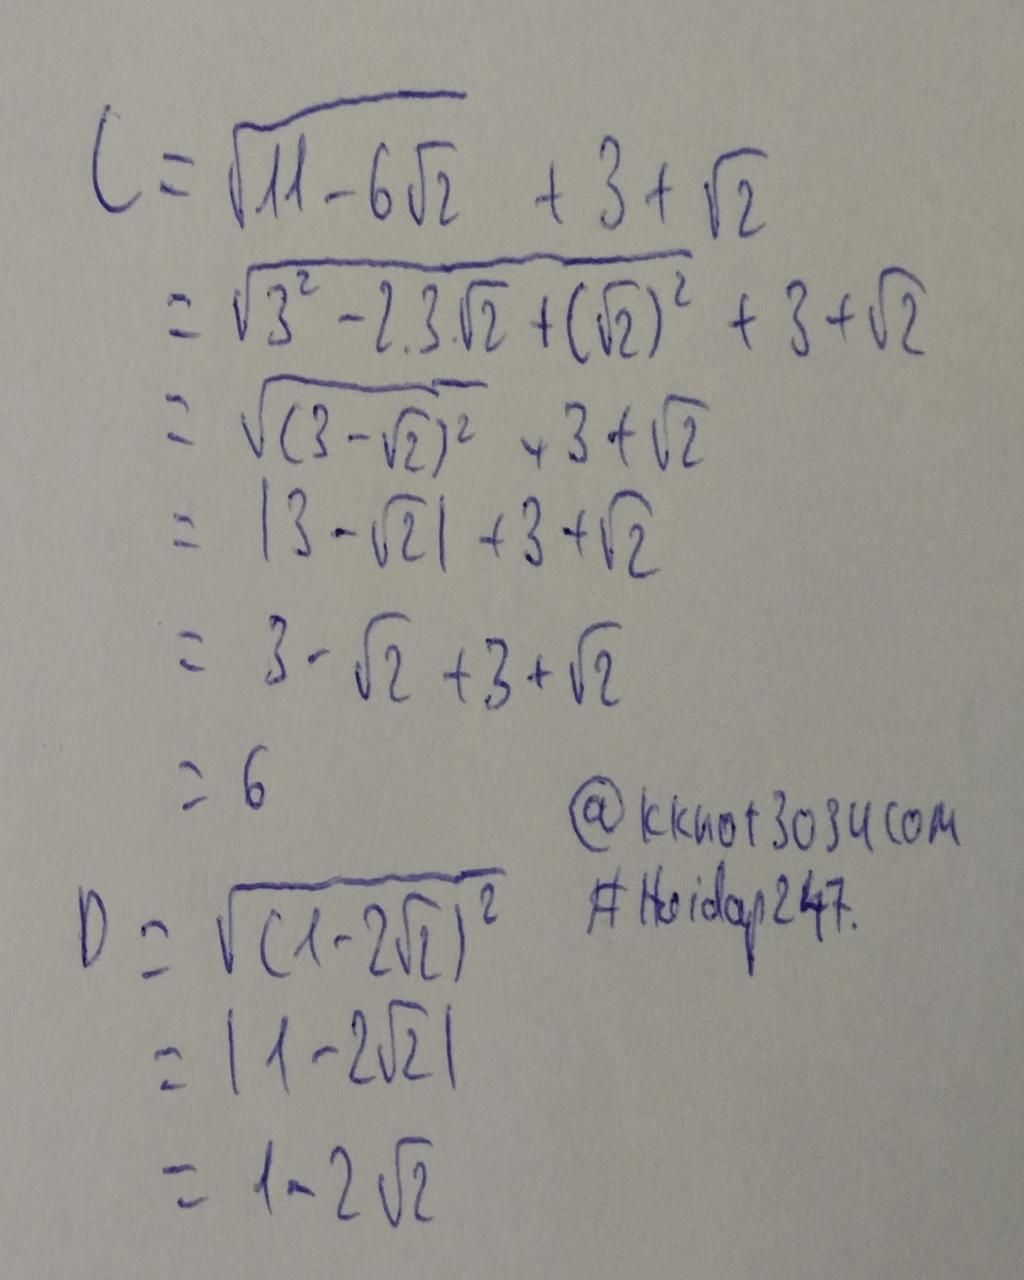 C = √(11 - 6√2) + 3 + √2
= √(3² - 2.3.√2 + (√2)²) + 3 + √2
= √((3 - √2)²) + 3 + √2
= |3 - √2| + 3 + √2
= 3 - √2 + 3 + √2
= 6
@kknot3034com
#Hoidap247.
D = √((1 - 2√2)²)
= |1 - 2√2|
= 1 - 2√2